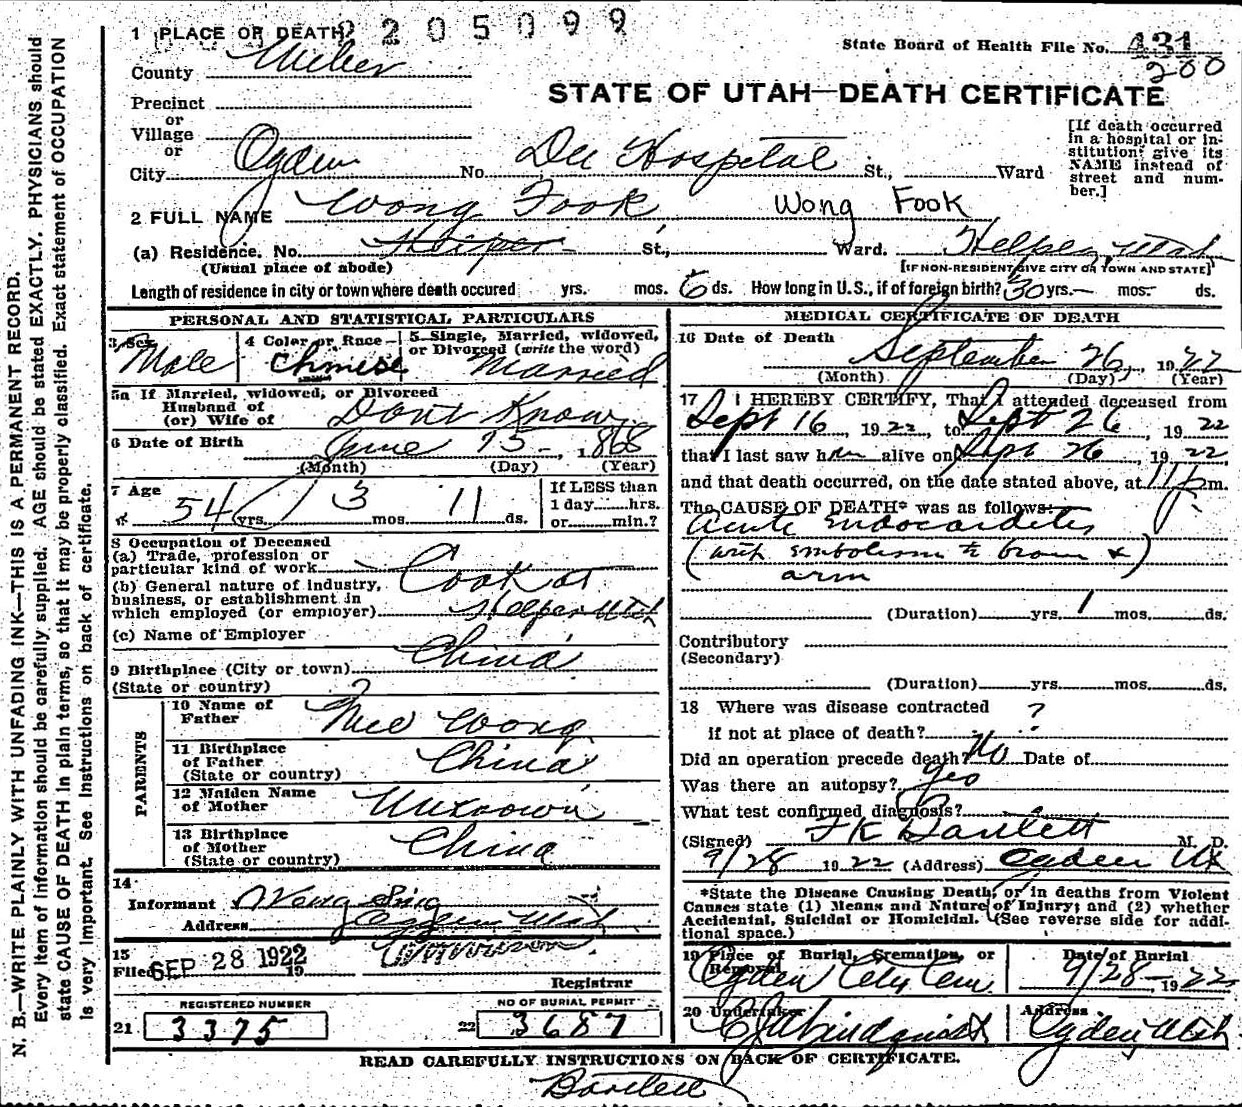 2205099
1 PLACE OF DEATH
State Board of Health File No. 431
200
County Weber
STATE OF UTAH—DEATH CERTIFICATE
Precinct
or
Village
or
City Ogden No. Dee Hospital St., Ward
[If death occurred
in a hospital or in-
stitution, give its
NAME instead of
street and num-
ber.]
2 FULL NAME Wong Fook Wong Fook
(a) Residence. No. St., Ward. Helper, Utah
(Usual place of abode) [IF NON-RESIDENT GIVE CITY OR TOWN AND STATE]
Length of residence in city or town where death occured yrs. mos. 6 ds. How long in U.S., if of foreign birth? 30 yrs.— mos. ds.
PERSONAL AND STATISTICAL PARTICULARS
3 Sex Male
4 Color or Race Chinese
5 Single, Married, widowed,
or Divorced (write the word) Married
5a If Married, widowed, or Divorced
Husband of
(or) Wife of Dont Know
6 Date of Birth June 15 - , 1868
(Month) (Day) (Year)
7 Age 54 yrs. 3 mos. 11 ds.
If LESS than
1 day hrs.
or min.?
8 Occupation of Deceased
(a) Trade, profession or
particular kind of work Cook at
(b) General nature of industry,
business, or establishment in
which employed (or employer) Helper Utah
(c) Name of Employer
9 Birthplace (City or town) China
(State or country)
PARENTS
10 Name of
Father Wong
11 Birthplace
of Father
(State or country) China
12 Maiden Name
of Mother Unknown
13 Birthplace
of Mother
(State or country) China
14
Informant Wong Sing
Address Ogden Utah
15
Filed SEP 28 1922 19
Registrar
REGISTERED NUMBER
21 3375
NO OF BURIAL PERMIT
22 3687
MEDICAL CERTIFICATE OF DEATH
16 Date of Death September 26, 1922
(Month) (Day) (Year)
17 I HEREBY CERTIFY, That I attended deceased from
Sept 16, 1922, to Sept 26, 1922
that I last saw him alive on Sept 26, 1922
and that death occurred, on the date stated above, at 11 p m.
The CAUSE OF DEATH* was as follows:
Acute Endocarditis
(with embolism to brain &)
arm
(Duration) yrs. 1 mos. ds.
Contributory
(Secondary)
(Duration) yrs. mos. ds.
18 Where was disease contracted
if not at place of death? ?
Did an operation precede death? No Date of
Was there an autopsy? Yes
What test confirmed diagnosis?
(Signed) F K Bartlett M. D.
9/28 1922 (Address) Ogden Ut
*State the Disease Causing Death, or in deaths from Violent
Causes state (1) Means and Nature of Injury; and (2) whether
Accidental, Suicidal or Homicidal. (See reverse side for addi-
tional space.)
19 Place of Burial, Cremation, or
Removal Ogden Cty Cem.
Date of Burial
9/28-1922
20 Undertaker
Address
Ogden Utah
READ CAREFULLY INSTRUCTIONS ON BACK OF CERTIFICATE.
Bartlett
N. B.—WRITE PLAINLY WITH UNFADING INK—THIS IS A PERMANENT RECORD.
Every item of information should be carefully supplied. AGE should be stated EXACTLY. PHYSICIANS should
state CAUSE OF DEATH in plain terms, so that it may be properly classified. Exact statement of OCCUPATION
is very important. See instructions on back of certificate.